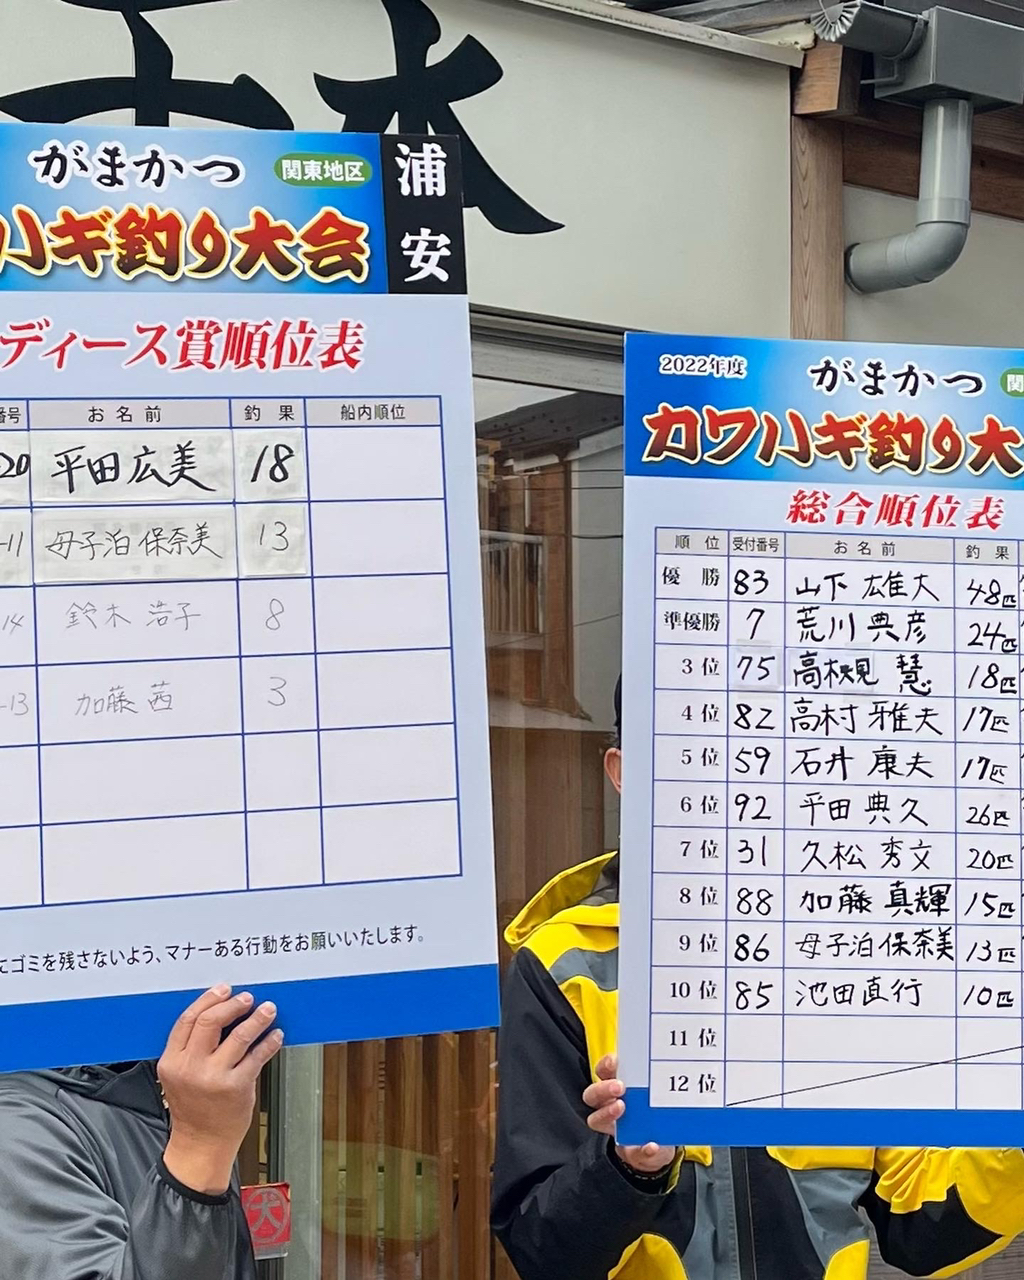 がまかつ 関東地区
ハギ釣り大会
浦安
ディース賞順位表
番号 お名前 釣果 船内順位
20 平田広美 18
-11 母子泊 保奈美 13
14 鈴木 浩子 8
-13 加藤 茜 3
にゴミを残さないよう、マナーある行動をお願いいたします。
2022年度 がまかつ 関
カワハギ釣り大
総合順位表
順位 受付番号 お名前 釣果
優勝 83 山下 雄大 48匹
準優勝 7 荒川 典彦 24匹
3位 75 高槻 慧 18匹
4位 82 高村 雅夫 17匹
5位 59 石井 康夫 17匹
6位 92 平田 典久 26匹
7位 31 久松 秀文 20匹
8位 88 加藤 真輝 15匹
9位 86 母子泊 保奈美 13匹
10位 85 池田直行 10匹
11位
12位
大